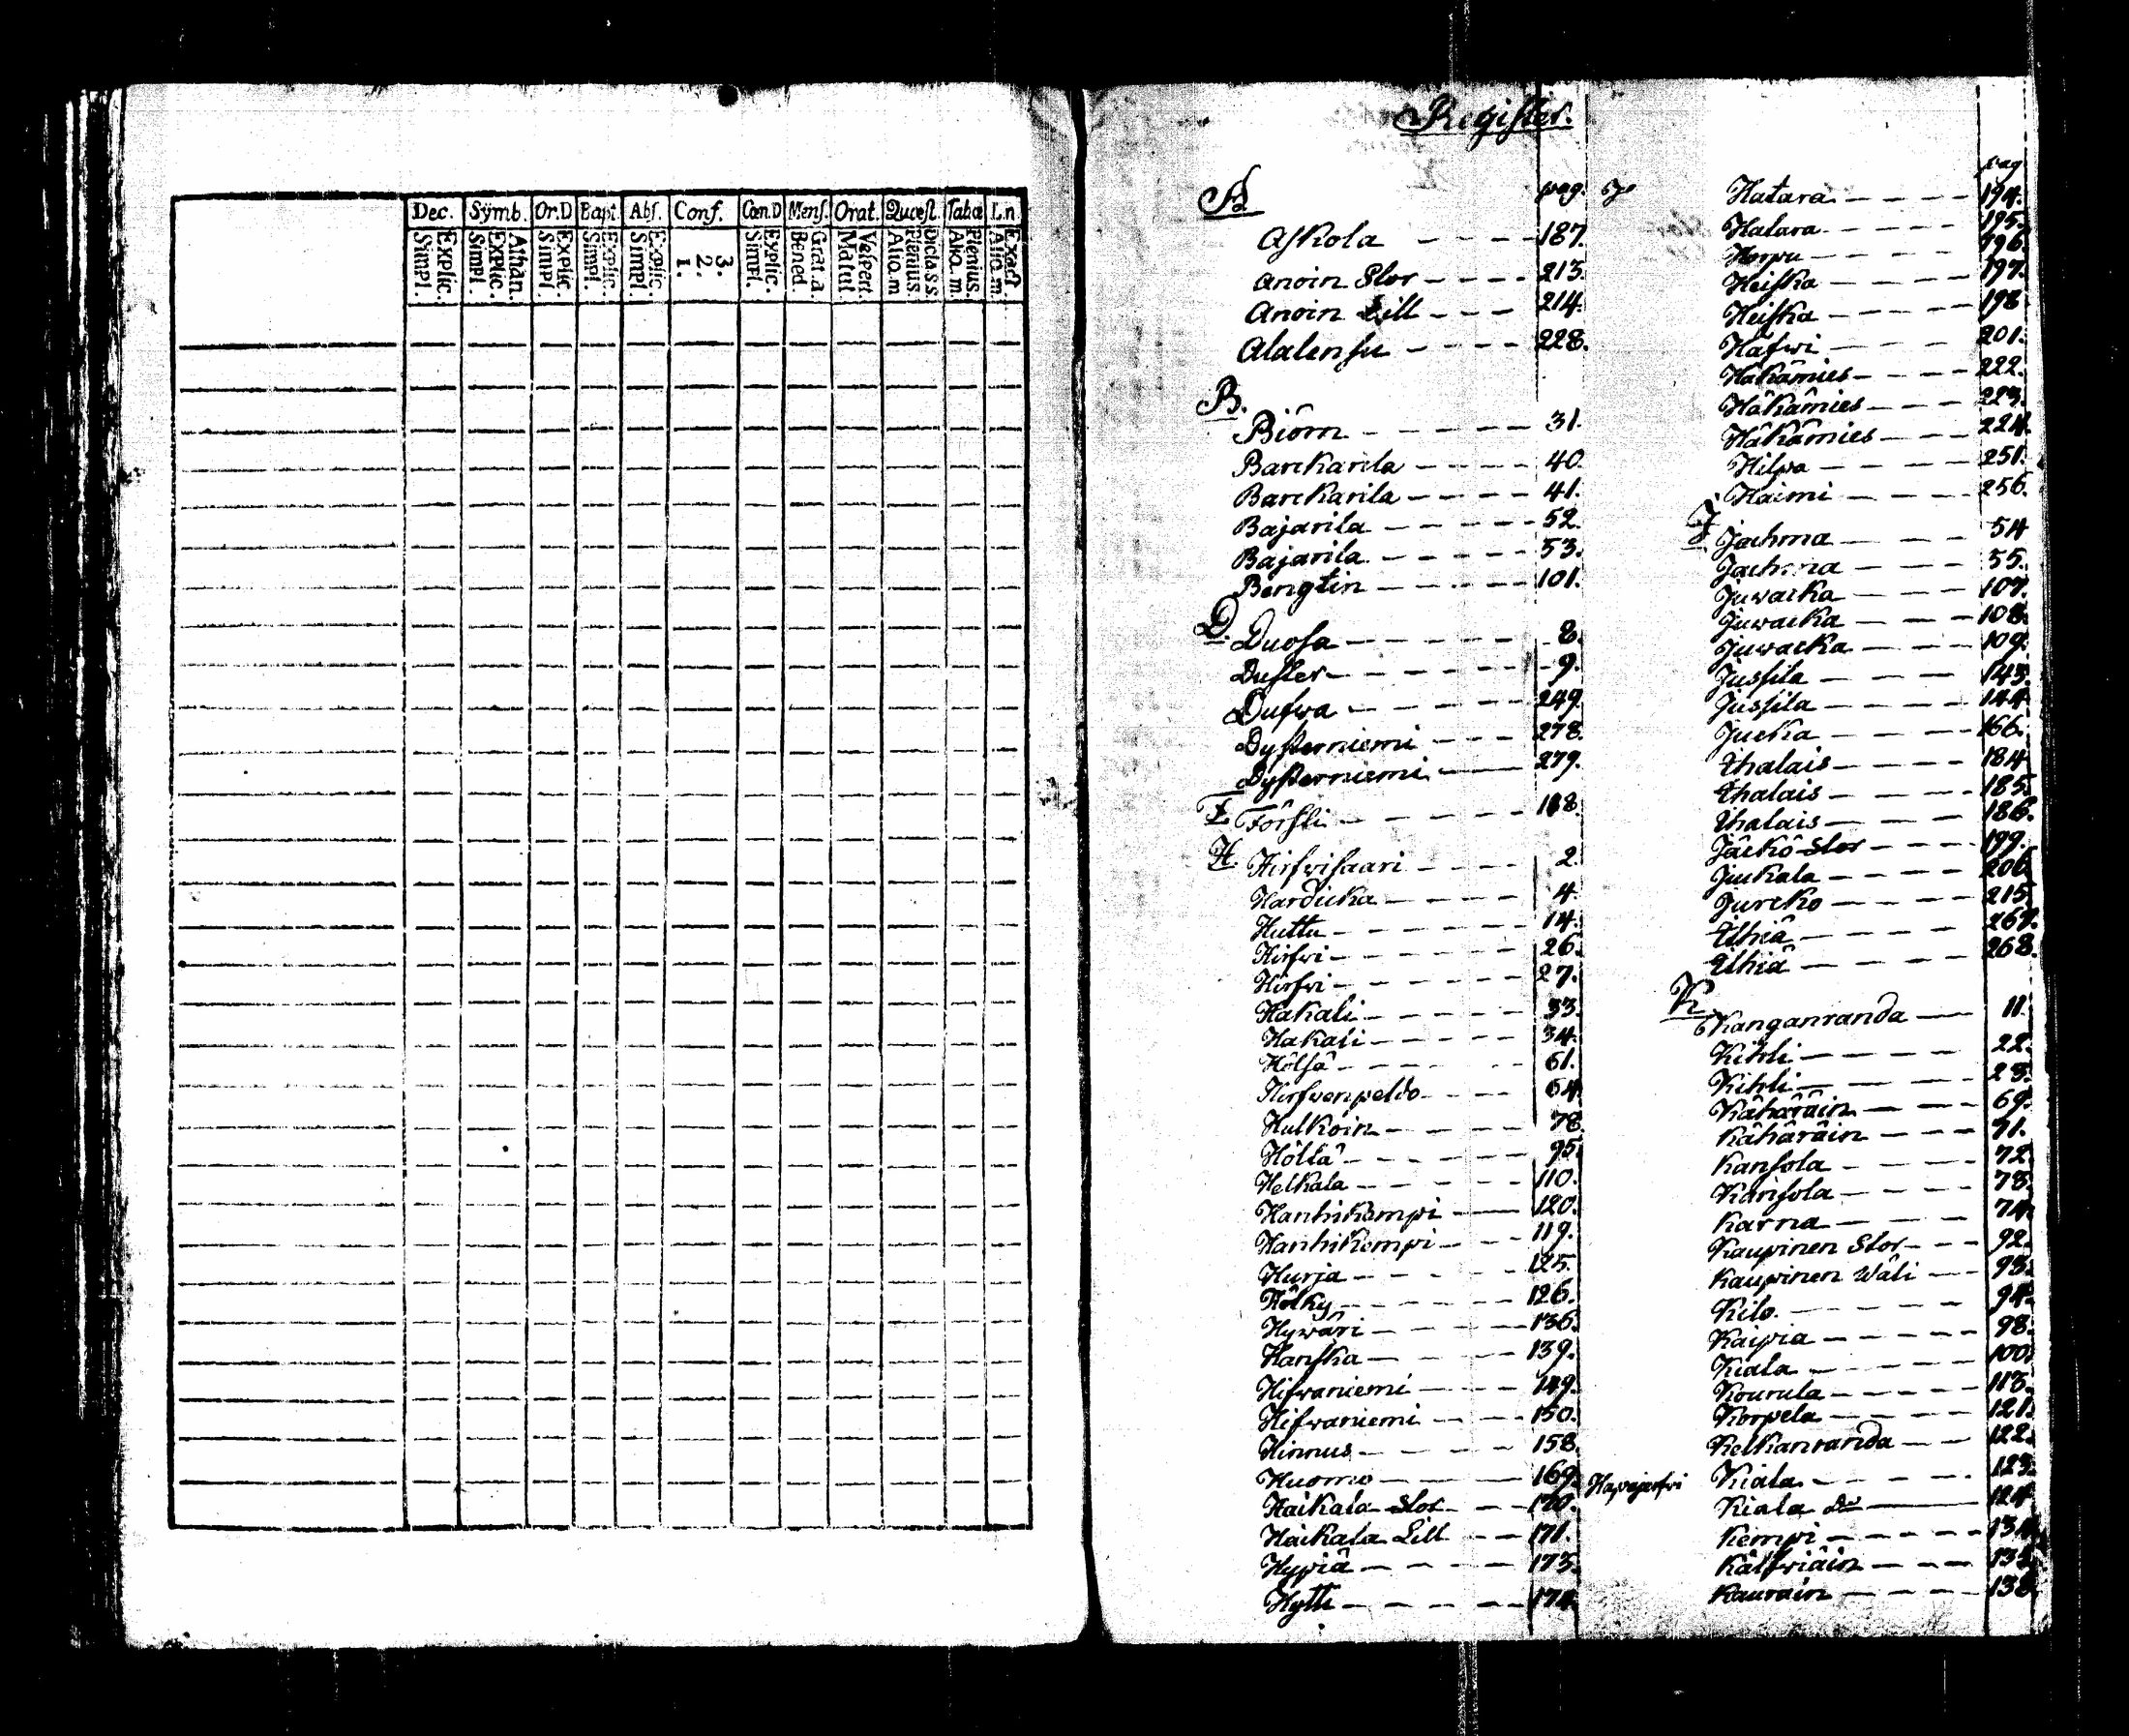 Dec. Symb. Or.D Bapt. Abs. Conf. Cœn.D Mens. Orat. Quæst. Tabœ L.n
Explic. Simpl. Athan. Explic. Simpl. Explic. Simpl. Explic. Simpl. Explic. Simpl. 3. 2. 1. Explic. Simpl. Grat. a. Bened. Vespert. Matut. Dicta S.S. Plenius. Aliq. m Plenius. Aliq. m. Exact Aliq. m.
Register.
A. pag.
Askola 187.
Anoin Stor 213.
Anoin Lill 214.
Alalensu 228.
B.
Biörn 31.
Barckarila 40.
Barckarila 41.
Bajarila 52.
Bajarila 53.
Bengtin 101.
D. Duosa 8.
Duster 9.
Dufwa 249.
Dysterniemi 278.
Dysterniemi 279.
F. Försti 118
H. Hirfwisaari 2.
Harducka 4.
Huttu 14.
Hirfwi 26.
Hirfwi 27.
Hakali 33.
Hakali 34.
Hölsä 61.
Hirfwenpeldo 64.
Hulkoin 78.
Hölltä 95.
Helkala 110.
Hanhikempi 120.
Hanhikempi 119.
Hurja 125.
Hölky 126.
Hywäri 136.
Hanska 139.
Hifwaniemi 149.
Hifwaniemi 150.
Hinnus 158.
Huomo 169.
Haikala Stor 170.
Haikala Lill 171.
Hypiä 173.
Hytti 174.
pag
Hatara 194.
Hatara 195.
Horpu 196.
Heiska 197.
Heiska 198
Häfwi 201.
Häkämies 222.
Häkämies 223.
Häkämies 224.
Hilpa 251.
Haimi 256.
J. Jachma 54
Jachma 55.
Juwacka 107.
Juwacka 108.
Juwacka 109.
Jussila 143.
Jussila 144.
Jucka 166.
Ihalais 184
Ihalais 185.
Ihalais 186.
Jäckö Stor 199.
Juckala 206.
Jurcko 215.
Ilhiä 267.
Ilhiä 268.
K.
Kanganranda 11.
Kihli 22.
Kihli 23.
Kähäräin 69.
Kähäräin 71.
Kansola 72.
Kansola 73.
Karna 74.
Kaupinen Stor 92.
Kaupinen Wäli 93.
Kilo 94.
Kaipia 98.
Kiala 100.
Kourula 113.
Korpela 121.
Kelkanranda 122.
Hapajerfwi Kiala 123.
Kiala Do 124.
Kempi 134.
Kälfwiäin 135.
Kaurain 138.